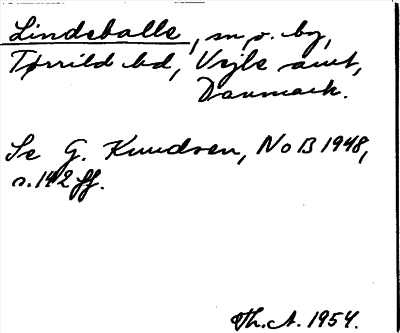 Lindeballe, m.fl. by,
Tørrild hd, Vejle amt,
Danmark.
Se G. Knudsen, NoB 1948,
s. 142 ff.
Th. A. 1954.